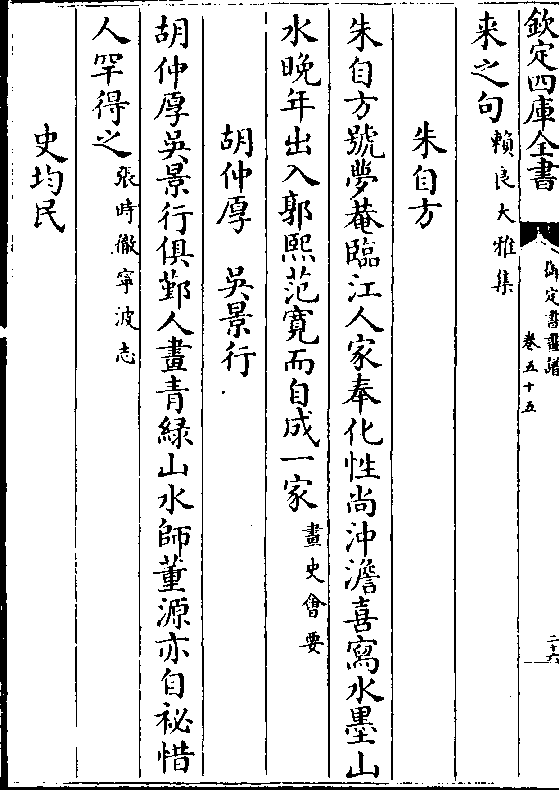 欽定四庫全書
御定書畫譜
卷五十五
二十六
来之句賴良大雅集
朱自方
朱自方號夢菴臨江人家奉化性尚沖澹喜寫水墨山
水晚年出入郭熙范寛而自成一家畫史會要
胡仲厚　吳景行
胡仲厚吳景行俱鄞人畫青緑山水師董源亦自祕惜
人罕得之張時徹寧波志
史均民